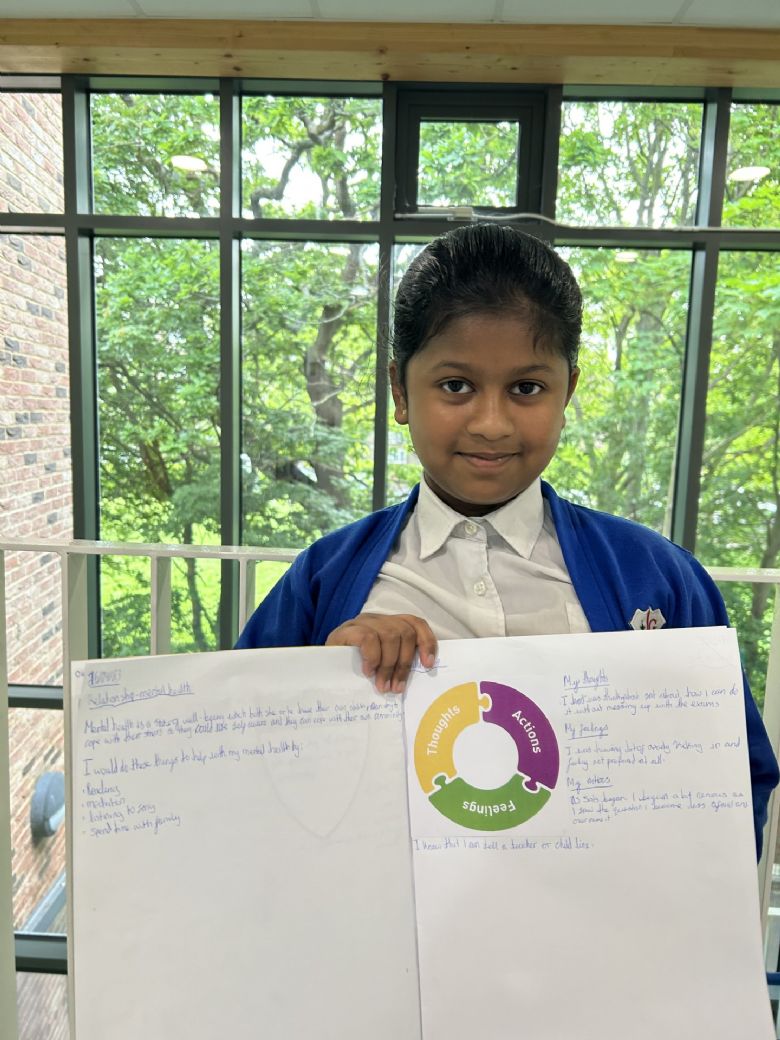 Relationship-mental health
Mental health is a state of well-being which both she or he have their own ability
cope with their stress as they could use self care and they can cope with their own community
I would do these things to help with my mental health by:
• Reading
• listening to song
• spend time with family
Thoughts
Actions
Feelings
My thoughts
I was about how I can do
it without messing up with the exams
My feelings
I was having lot of making in and
feeling not prepared at all.
My actions
As Sats began I began a bit nervous as
I saw the question I become less
I know that I can tell a teacher or child line.